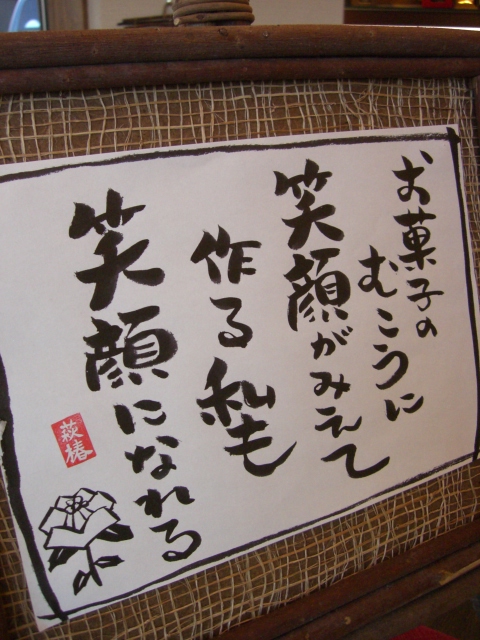 お菓子の
むこうに
笑顔がみえて
作る私も
笑顔になれる
萩椿